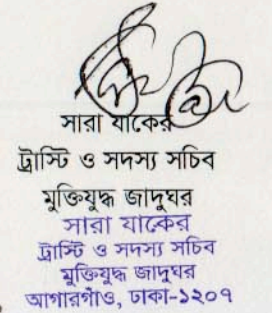 সারা যাকের
ট্রাস্টি ও সদস্য সচিব
মুক্তিযুদ্ধ জাদুঘর
সারা যাকের
ট্রাস্টি ও সদস্য সচিব
মুক্তিযুদ্ধ জাদুঘর
আগারগাঁও, ঢাকা-১২০৭